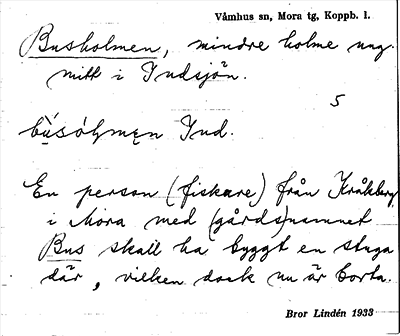 Våmhus sn, Mora tg, Koppb. l.
Busholmen, mindre holme ung.
mitt i Indsjön.
5
Ind.
En person (fiskare) från Kråkberg
i Mora med (gårds)namnet
Bus skall ha byggt en stuga
där, vilken dock nu är borta.
Bror Lindén 1933